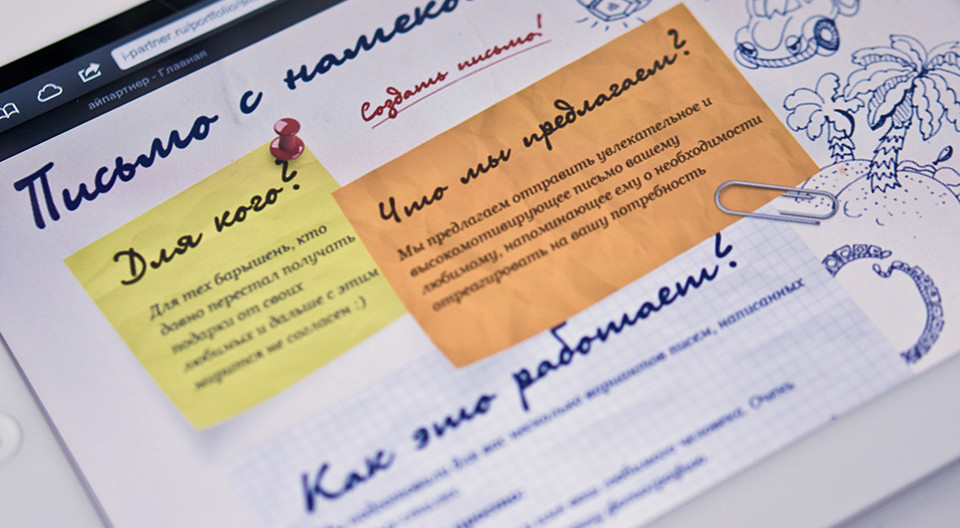 i-partner.ru/portfolio/
айпартнер - Главная
Письмо с намеко
Создать письмо!
Для кого?
Для тех барышень, кто
давно перестал получать
подарки от своих
любимых и дальше с этим
мирится не согласен :)
Что мы предлагаем?
Мы предлагаем отправить увлекательное и
высокомотивирующее письмо вашему
любимому, напоминающее ему о необходимости
отреагировать на вашу потребность
Как это работает?
для вас несколько вариантов писем, написанных
имя любимого человека. Очень